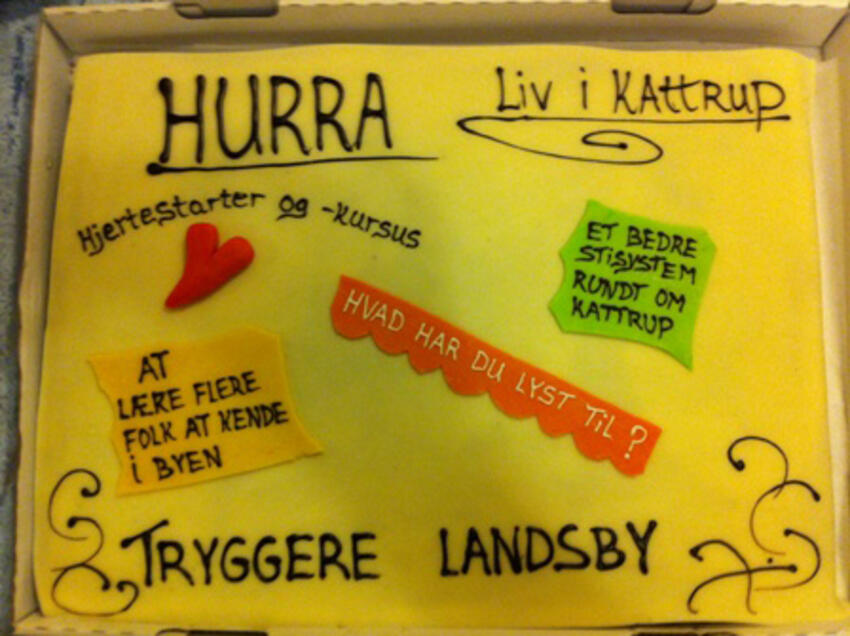 HURRA
Liv i KAttRUP
Hjertestarter og -kursus
ET BEDRE
STISYSTEM
RUNDT OM
KATTRUP
HVAD HAR DU LYST TiL ?
AT
LÆRE FLERE
FOLK AT KENDE
i BYEN
TRYGGERE LANDSBY